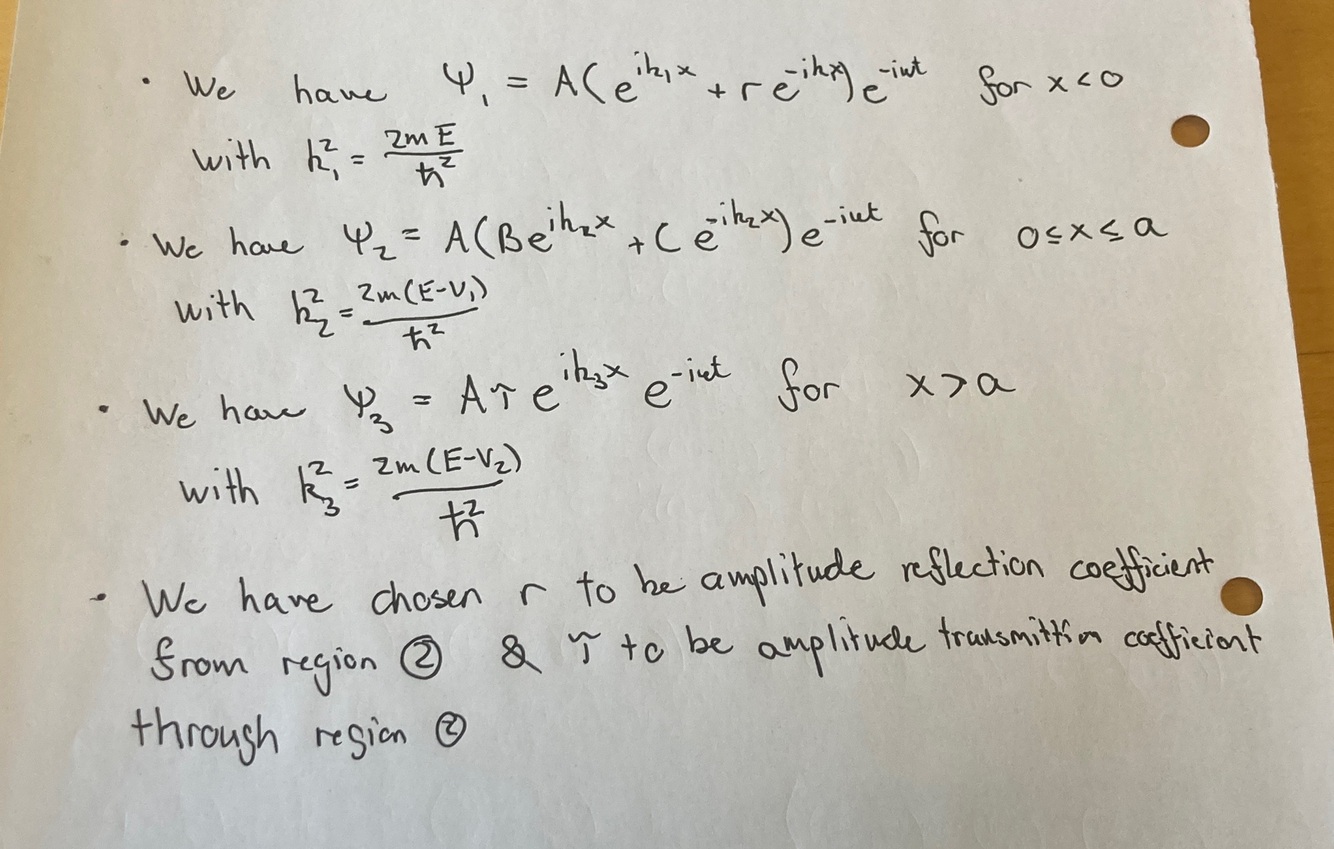 · We have Ψ₁ = A(e^{ik₁x} + re^{-ikx})e^{-iωt} for x<0
with k₁² = 2mE/ħ²
· We have Ψ₂ = A(Be^{ik₂x} + Ce^{-ik₂x})e^{-iωt} for 0≤x≤a
with k₂² = 2m(E-V₁)/ħ²
· We have Ψ₃ = Aτe^{ik₃x} e^{-iωt} for x>a
with k₃² = 2m(E-V₂)/ħ²
· We have chosen r to be amplitude reflection coefficient
from region ② & τ to be amplitude transmission coefficient
through region ②